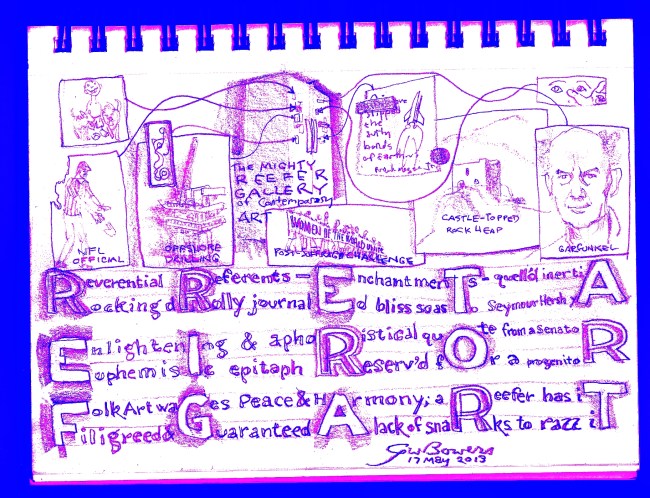 THE MIGHTY
REEFER
GALLERY
of Contemporary
ART
slipped
the
surly
bonds
of Earth
NFL
OFFICIAL
OFFSHORE
WOMEN OF THE WORLD UNITE
POST-SUFFRAGE CHALLENGE
CASTLE-TOPPED
ROCK HEAP
GARFUNKEL
Reverential Referents - EnchantmenTs - quell'd inertiA
Rocking a Rolly journalEd bliss so as To Seymour Hersh yA
EnlightenIng & aphoRistical quOte from a SenatoR
EuphemisIc epitaph Reserv'd fOr a progenitoR
Folk Art waGes Peace & HArmony; a Reefer has iT
Filigreed & Guaranteed A lack of snaRks to razz iT
GwBowers
17 May 2013